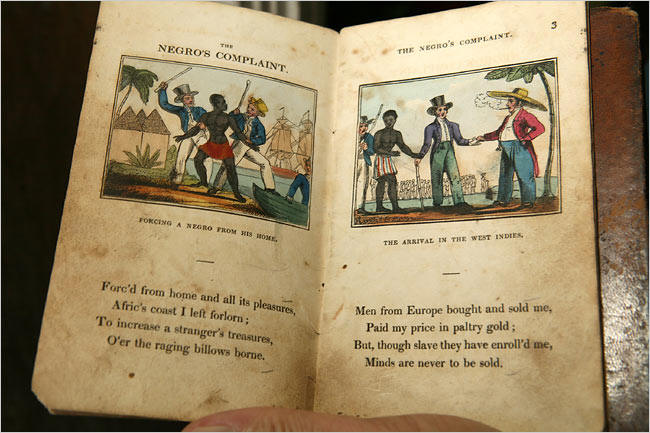 THE
NEGRO'S COMPLAINT.
FORCING A NEGRO FROM HIS HOME.
Forc'd from home and all its pleasures,
Afric's coast I left forlorn;
To increase a stranger's treasures,
O'er the raging billows borne.
THE NEGRO'S COMPLAINT.
3
THE ARRIVAL IN THE WEST INDIES.
Men from Europe bought and sold me,
Paid my price in paltry gold;
But, though slave they have enroll'd me,
Minds are never to be sold.